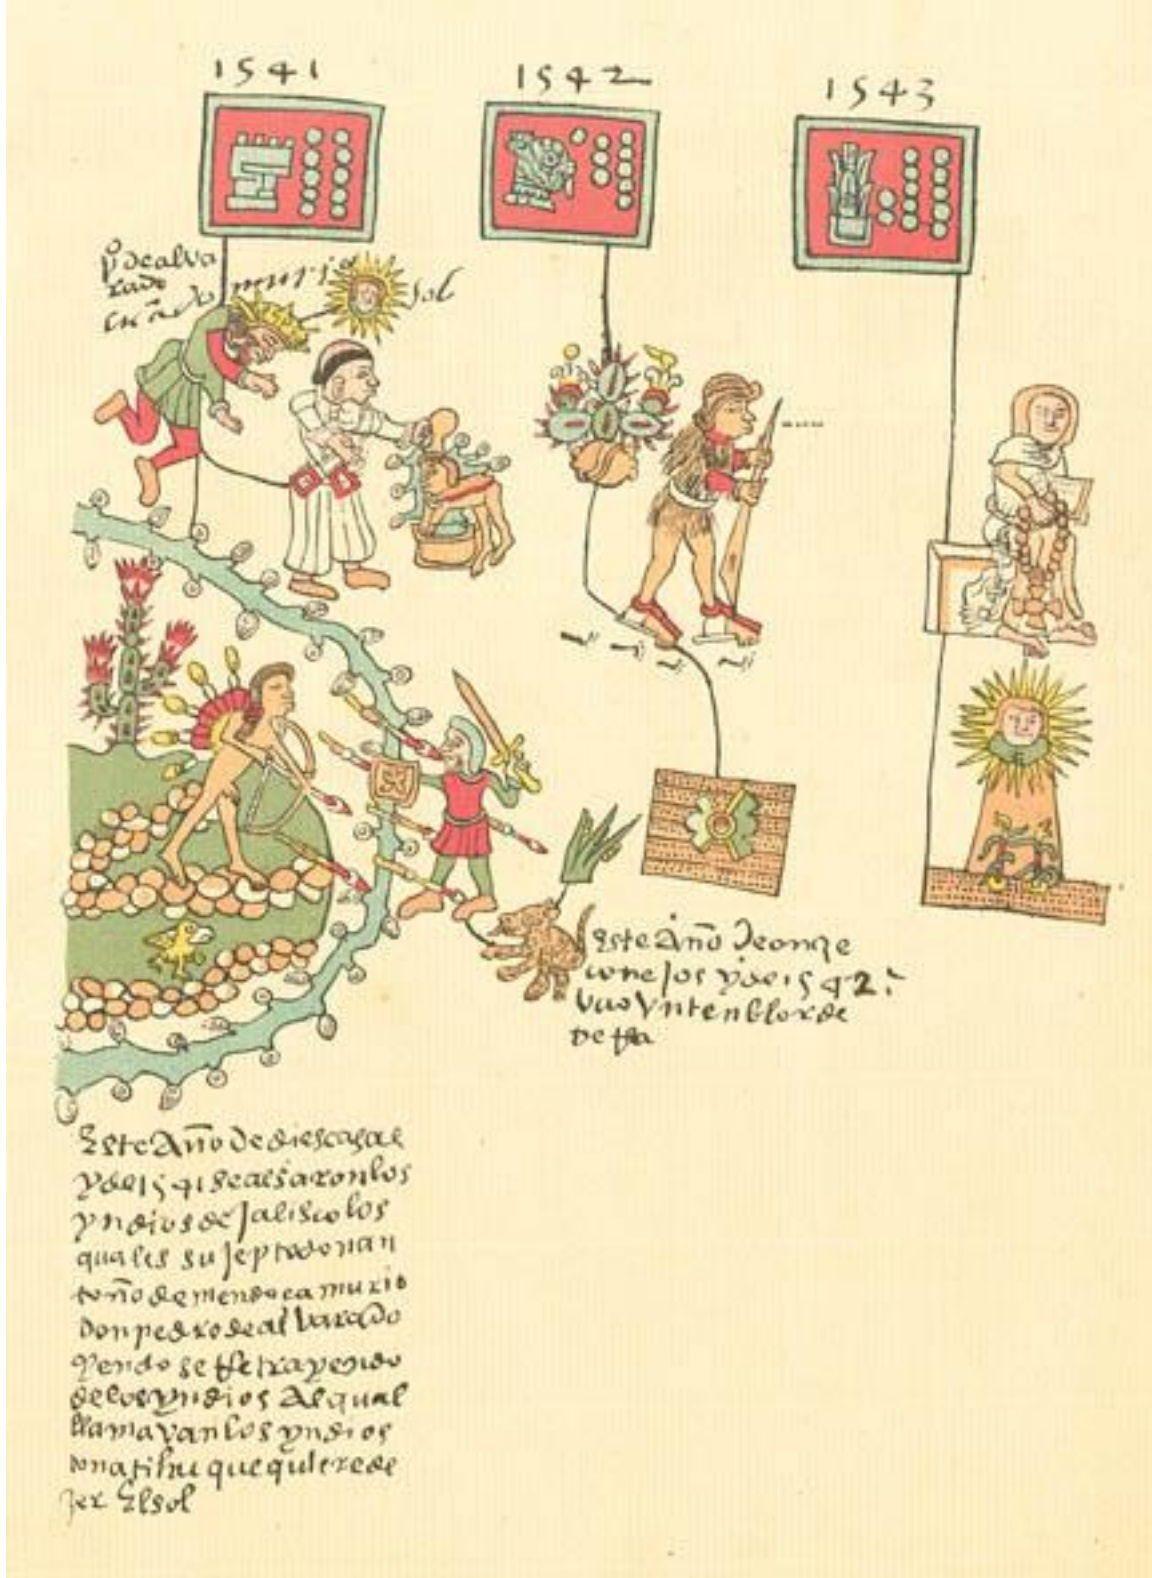 1541
1542
1543
po de alva
rado
cuādo murio
sol
este Año De onze
conejos y de 1542
uuo Vn tenblor de
De tra
Este Año De diescasas
y de 1541 se alsaron los
yndios de Jalisco los
quales sujepto don an
toño de mendoca murio
Don pedro de alVarado
yendo se Retrayendo
de los yndios Al qual
llamaVan los yndios
tonatihu que quiere de
zer El sol